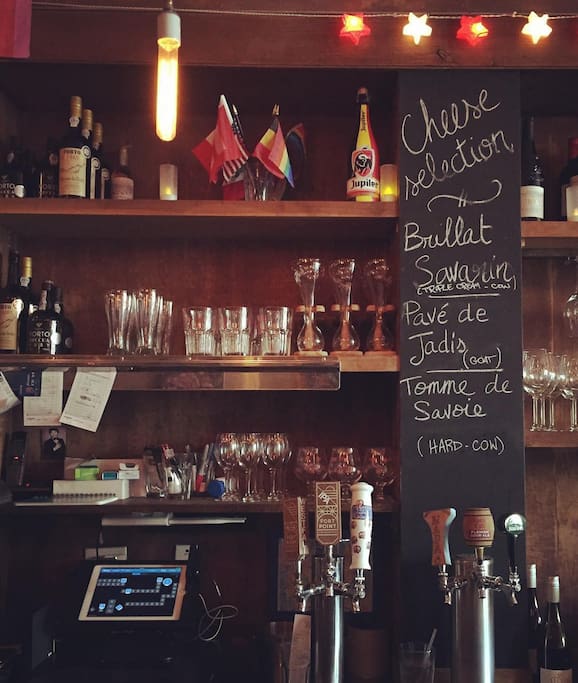 Cheese
selection
Brillat
Savarin
(TRIPLE CREAM - COW)
Pavé de
Jadis
(GOAT)
Tomme de
Savoie
(HARD-COW)
Jupiler
PORTO
PORTO
FORT POINT